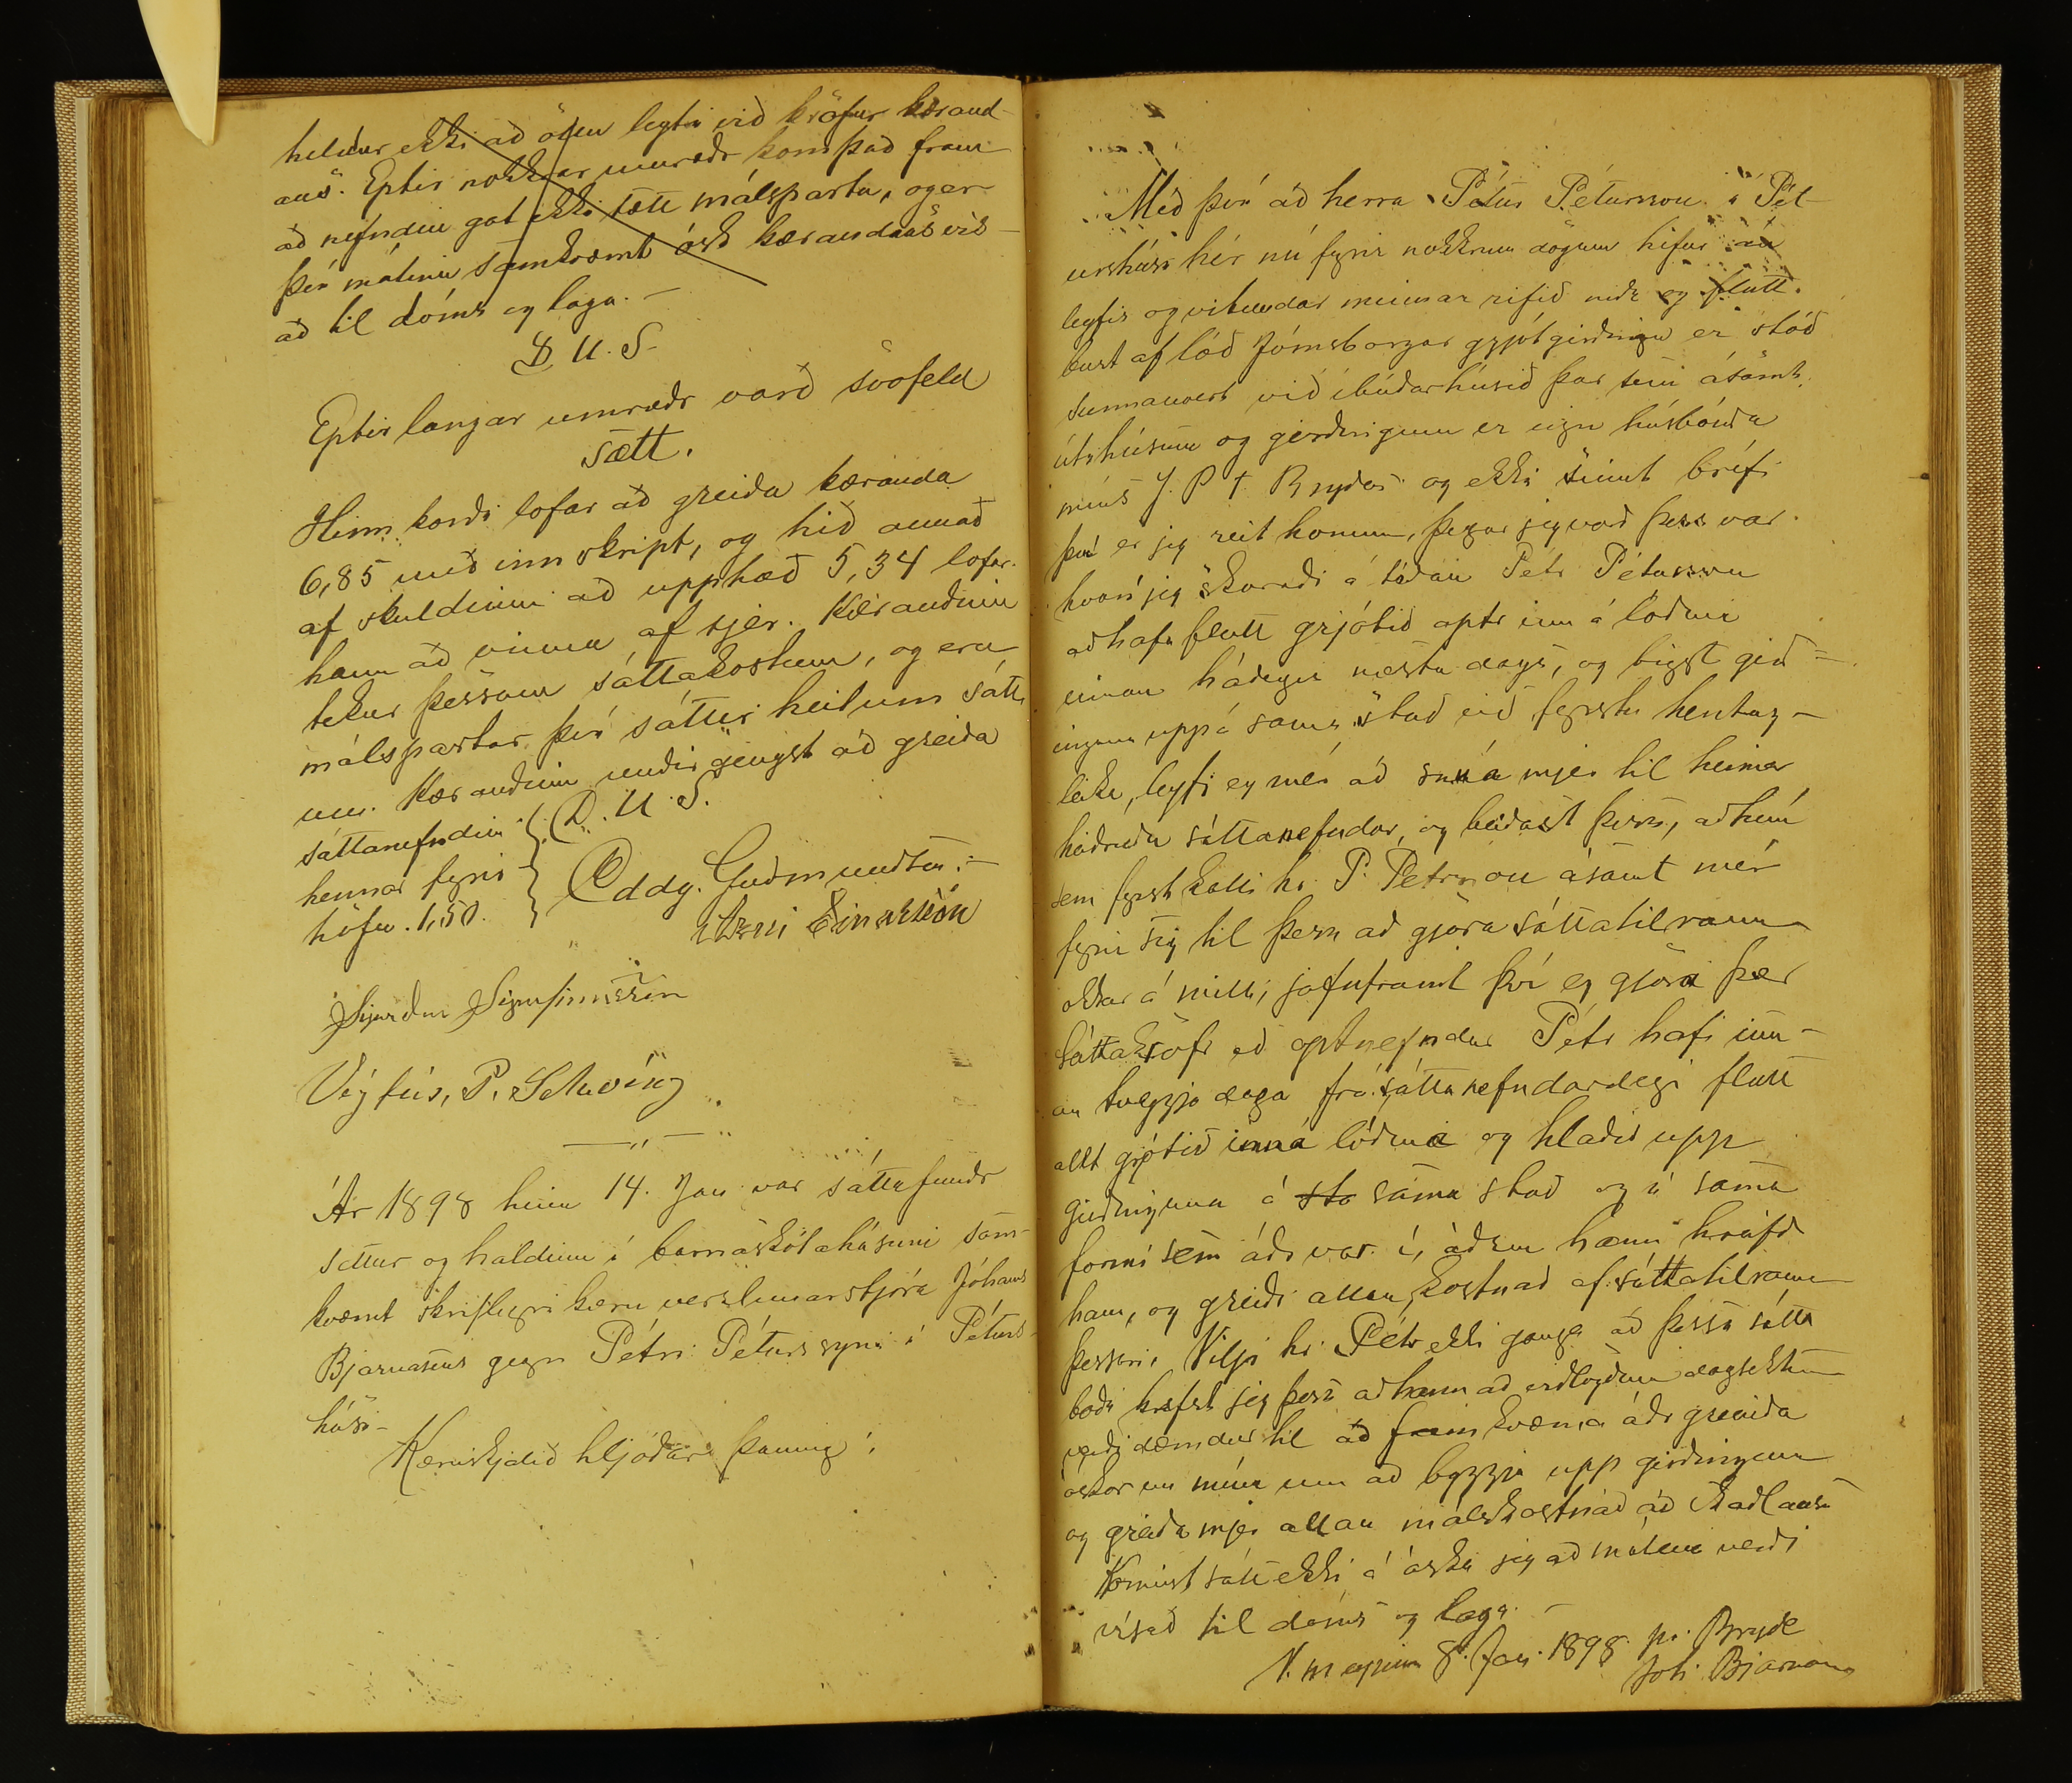 heldur ekki að öllu leyti við kröfur kærand-
ans. Eptir nokkrar umræðr kom það fram
að nefndin gat ekki sætt málsparta, og er
því málinu samkvæmt ósk kærandans vís-
að til dóms og laga. —
D. U. S.
Eptir langar umræðr varð svofeld
sætt.
Hinn kærði lofar að greiða kæranda
6,85 með innskript, og hið annað
af skuldinni að upphæð 5,34 lofar
hann að vinna af sjer. Kærandinn
tekur þessum sáttakostum, og eru
málspartar því sáttir heilum sátt-
um. Kærandinn undirgengst að greiða
sáttanefndinni
hennar fyrir
höfn. 1,50.
D. U. S.
Oddg. Guðmundsen. —
Árni Einarsson
Sigurður Sigurfinnsson
Vigfús, P. Schevíng
— „ —
Ár 1898 hinn 14. Jan var sáttafundr
settur og haldinn í barnaskólahúsinu sam-
kvæmt skriflegri kæru verzlunarstjóra Jóhanns
Bjarnasens gegn Pétri Péturssyni í Péturs-
húsi-
Kæruskjalið hljóðar þannig:
Með því að herra Pétur Pétursson í Pét-
urshúsi hér nú fyrir nokkrum dögum hefur án
leyfis og vitundar minnar rifið niðr og flutt
burt af lóð Jómsborgar grjótgirðingu er stóð
sunnanvert við íbúðarhúsið þar sem ásamt
útihúsum og girðingum er eign húsbónda
míns J. P. T. Brydes og ekki sinnt bréfi
því er jeg reit honum, þegar jeg varð þess var
hvar jeg skoraði á téðan Pétr Pétursson
að hafa flutt grjótið aptr inn á lóðina
innan hádegis næsta dags, og bygt girð-
inguna upp á sama stað við fyrstu hentug-
leika, leyfi eg mér að snúa mjer til heima
sáttanefndar, og beiðast þess, að hún
sem fyrst kalli hr. P. Pétursson ásamt mér
fyrir sig til þess að gjöra sáttatilraun
okkar á milli, jafnframt því eg gjöri þær
sáttakröfr að optnefndur Pétr hafi inn-
an tveggja daga frá sáttanefndardegi flutt
allt grjótið inná lóðina og hlaðið upp
girðinguna á sto sama stað og í sama
formi sem áðr var í, áðren hann hreifð
hana, og greiði allan kostnað af sáttatilraun
þessari. Vilji hr. Pétr ekki ganga að þessu sátta
boði krefst jeg þess að hann að viðlögðum dagsektum
verði dæmdur til að framkvæma áðr greinda
áskorun mína um að byggja upp girðinguna
og greiða mjer allan málskostnað að skaðlausu
Komist sátt ekki á óska jeg að málinu verði
vísað til dóms og laga. —
8. Jan. 1898. pr. Bryde
Joh. Bjarnasen